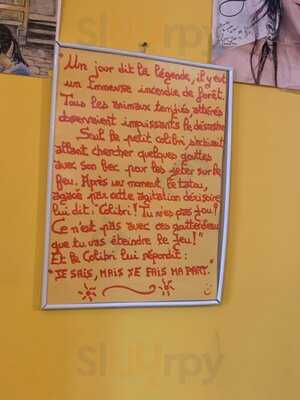 "Un jour dit la légende, il y eut
un immense incendie de forêt.
Tous les animaux terrifiés, attérés
observaient impuissants le désastre
Seul le petit colibri s'activait
allant chercher quelques gouttes
avec son bec pour les jeter sur le
feu. Après un moment, le tatou,
agacé par cette agitation dérisoire
lui dit: "Colibri! Tu n'es pas fou?
Ce n'est pas avec ces gouttes d'eau
que tu vas éteindre le feu!"
Et le Colibri lui répondit:
"JE SAIS, MAIS JE FAIS MA PART."